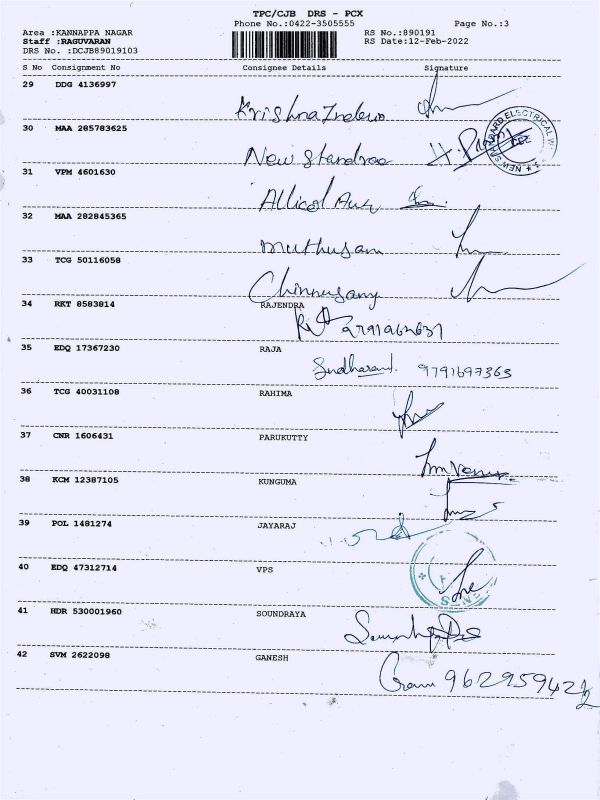 TPC/CJB DRS - PCX
Phone No.:0422-3505555 Page No.:3
Area :KANNAPPA NAGAR RS No.:890191
Staff :RAGUVARAN RS Date:12-Feb-2022
DRS No. :DCJB89019103
S No Consignment No Consignee Details Signature
29 DDG 4136997
Krishna
30 MAA 285783625
New
31 VPM 4601630
32 MAA 282845365
Muthusam
33 TCG 50116058
Chinnusamy
34 RKT 8583814 RAJENDRA
35 EDQ 17367230 RAJA
9791697363
36 TCG 40031108 RAHIMA
37 CNR 1606431 PARUKUTTY
38 KCM 12387105 KUNGUMA
39 POL 1481274 JAYARAJ
40 EDQ 47312714 VPS
41 HDR 530001960 SOUNDRAYA
42 SVM 2622098 GANESH